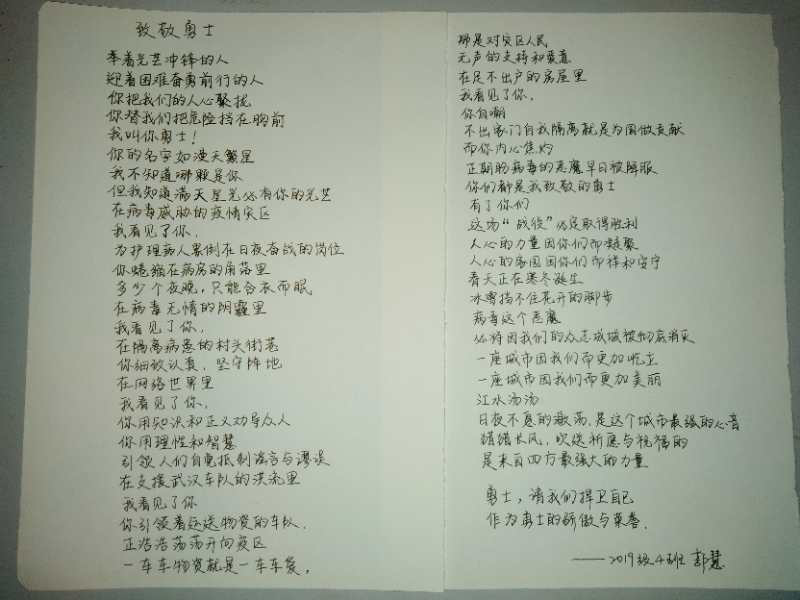 致敬勇士
牵着光芒冲锋的人
迎着困难奋勇前行的人
你把我们的人心聚拢
你替我们把危险挡在胸前
我叫你勇士!
你的名字如漫天繁星
我不知道哪颗是你
但我知道满天星光必有你的光芒
在病毒威胁的疫情灾区
我看见了你,
为护理病人累倒在日夜奋战的岗位
你蜷缩在病房的角落里
多少个夜晚,只能合衣而眠
在病毒无情的阴霾里
我看见了你,
在隔离病患的村头街巷
你细致认真,坚守阵地
在网络世界里
我看见了你,
你用知识和正义劝导众人
你用理性和智慧
引领人们自觉抵制谣言与谬误
在支援武汉车队的洪流里
我看见了你
你引领着运送物资的车队,
正浩浩荡荡开向疫区
一车车物资就是一车车爱,
那是对灾区人民
无声的支持和关爱
在足不出户的房屋里
我看见了你,
你自嘲
不出家门自我隔离就是为国做贡献
而你内心焦灼
正期盼病毒的恶魔早日被降服
你们都是我致敬的勇士
有了你们
这场“战役”必定取得胜利
人心的力量因你们而凝聚
人心的家园因你们而祥和安宁
春天正在寒冬诞生
冰雪挡不住花开的脚步
病毒这个恶魔
必将因我们的众志成城被彻底消灭
一座城市因我们而更加屹立
一座城市因我们而更加美丽
江水汤汤
日夜不息的激荡,是这个城市最强的心音
猎猎长风,吹送祈愿与祝福的
是来自四方最强大的力量
勇士,请我们捍卫自己
作为勇士的骄傲与荣誉,
——2019级4班 彭慧